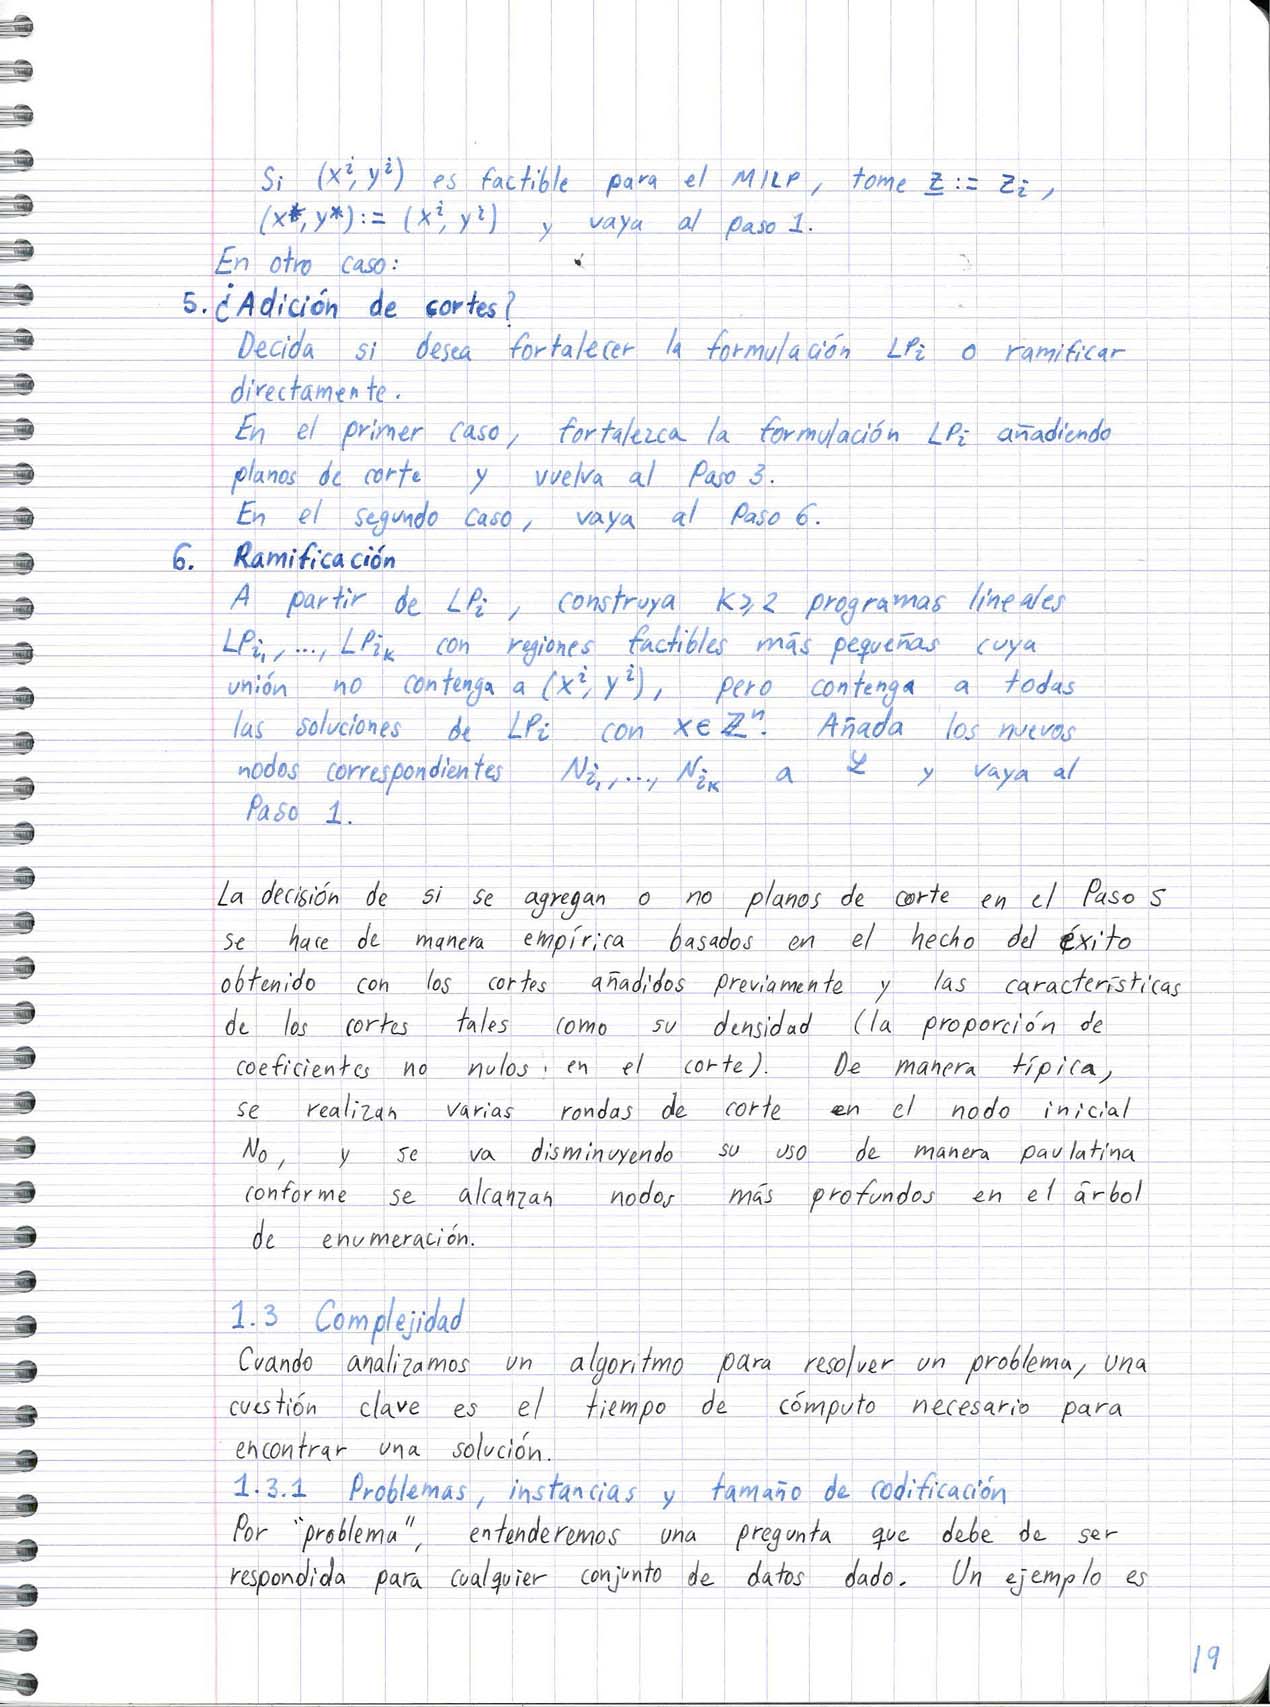 Si (xⁱ, yⁱ) es factible para el MILP, tome z̲ := zᵢ,
(x*, y*) := (xⁱ, yⁱ) y vaya al paso 1.
En otro caso:
5. ¿Adición de cortes?
Decida si desea fortalecer la formulación LPᵢ o ramificar
directamente.
En el primer caso, fortalezca la formulación LPᵢ añadiendo
planos de corte y vuelva al Paso 3.
En el segundo caso, vaya al Paso 6.
6. Ramificación
A partir de LPᵢ, construya K⩾2 programas lineales
LPᵢ₁, ..., LPᵢₖ con regiones factibles más pequeñas cuya
unión no contenga a (xⁱ, yⁱ), pero contenga a todas
las soluciones de LPᵢ con x∈ℤⁿ. Añada los nuevos
nodos correspondientes Nᵢ₁, ..., Nᵢₖ a ℒ y vaya al
Paso 1.
La decisión de si se agregan o no planos de corte en el Paso 5
se hace de manera empírica basados en el hecho del éxito
obtenido con los cortes añadidos previamente y las características
de los cortes tales como su densidad (la proporción de
coeficientes no nulos en el corte). De manera típica,
se realizan varias rondas de corte en el nodo inicial
N₀, y se va disminuyendo su uso de manera paulatina
conforme se alcanzan nodos más profundos en el árbol
de enumeración.
1.3 Complejidad
Cuando analizamos un algoritmo para resolver un problema, una
cuestión clave es el tiempo de cómputo necesario para
encontrar una solución.
1.3.1 Problemas, instancias y tamaño de codificación
Por "problema", entenderemos una pregunta que debe de ser
respondida para cualquier conjunto de datos dado. Un ejemplo es
19